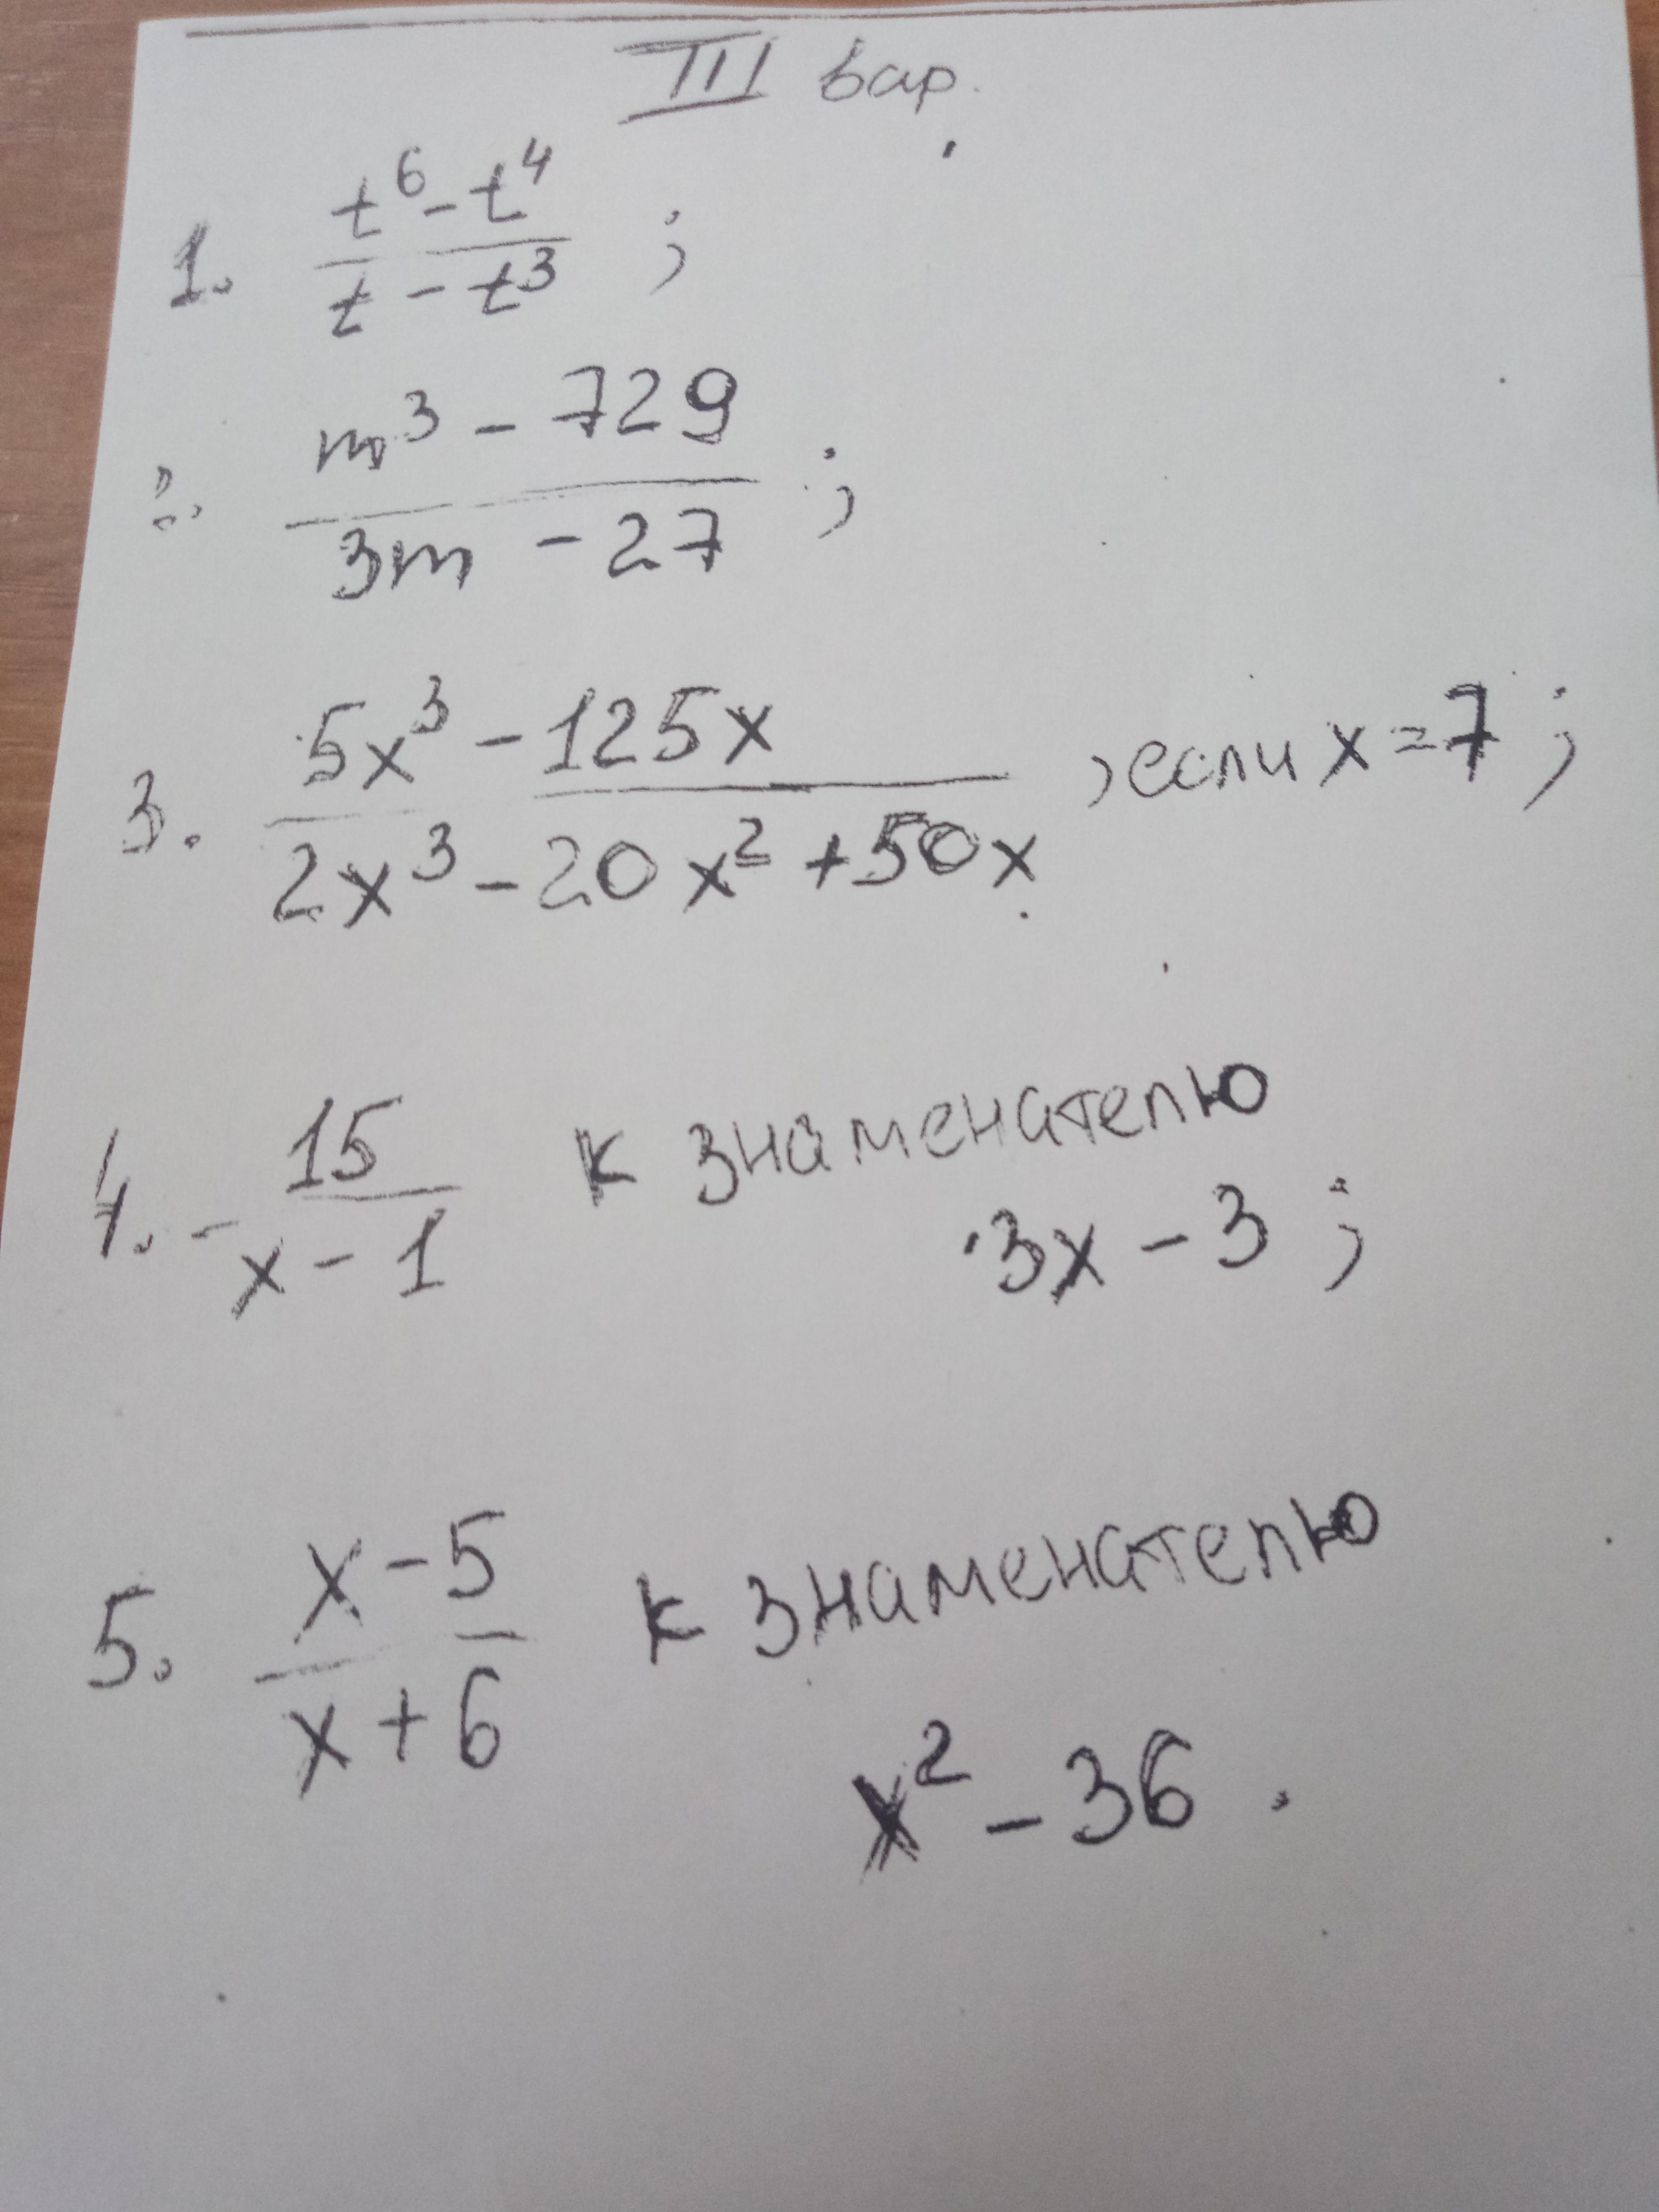 III вар.
1. t⁶ - t⁴ / t - t³ ;
2. m³ - 729 / 3m - 27 ;
3. 5x³ - 125x / 2x³ - 20x² + 50x , если x = 7 ;
4. - 15 / x - 1 к знаменателю
3x - 3 ;
5. x - 5 / x + 6 к знаменателю
x² - 36 .